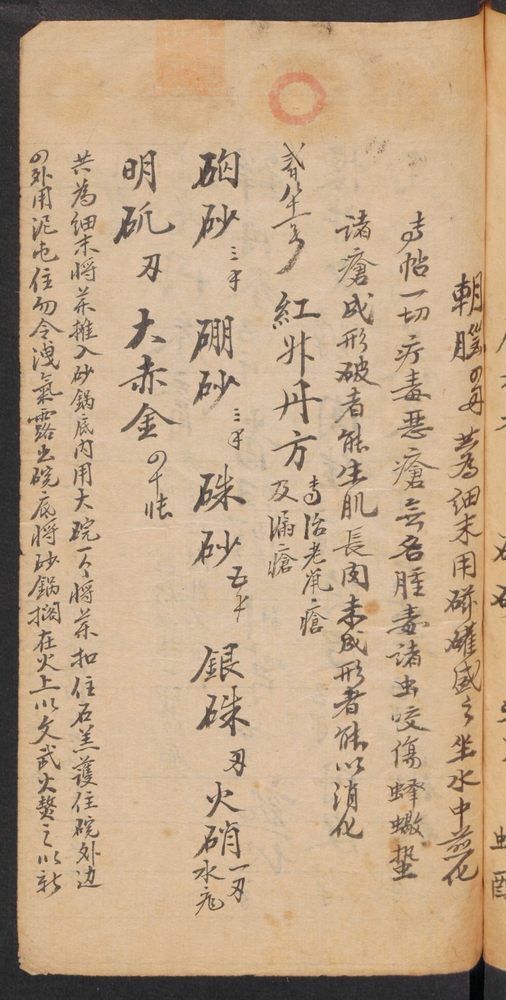 朝腦四每 共為細末用磁罐盛之坐水中蒸化
專帖一切疔毒惡瘡无名腫毒諸虫咬傷蜂蠍蜇
諸瘡成形破者能生肌長肉未成形者能以消化
紅升丹方 專治老鼠瘡及漏瘡
硇砂三 硼砂三 硃砂五 銀硃 火硝一刄 水
明矾刄 大赤金四十張
共為細末將藥推入砂鍋底內用大碗一个將藥扣住石羔護住碗外边
四外用泥屯住勿令洩氣露出碗底將砂鍋擱在火上以文武火熬之以新